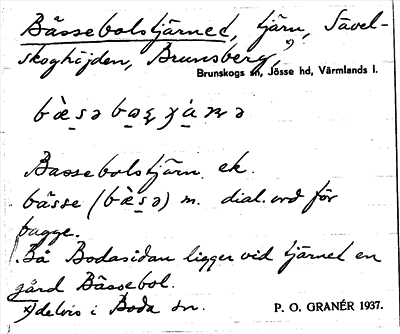 Bässebolstjärnet, tjärn, Sävel-
skoghöjden, Brunsberg x)
Brunskogs sn, Jösse hd, Värmlands l.
Bassebolstjärn. ek.
bässe (bæ̀sə) m. dial. ord för
bagge.
På Bodasidan ligger vid tjärnet en
gård Bässebol.
x) delvis i Boda sn.
P. O. GRANÉR 1937.